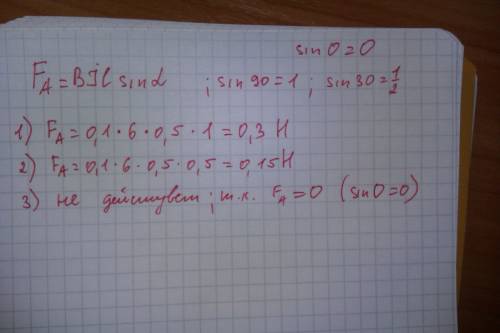 sin 0 = 0
F_A = BIl sinα ; sin 90 = 1 ; sin 30 = 1/2
1) F_A = 0,1 · 6 · 0,5 · 1 = 0,3 Н
2) F_A = 0,1 · 6 · 0,5 · 0,5 = 0,15 Н
3) не действует ; т.к. F_A = 0 (sin 0 = 0)